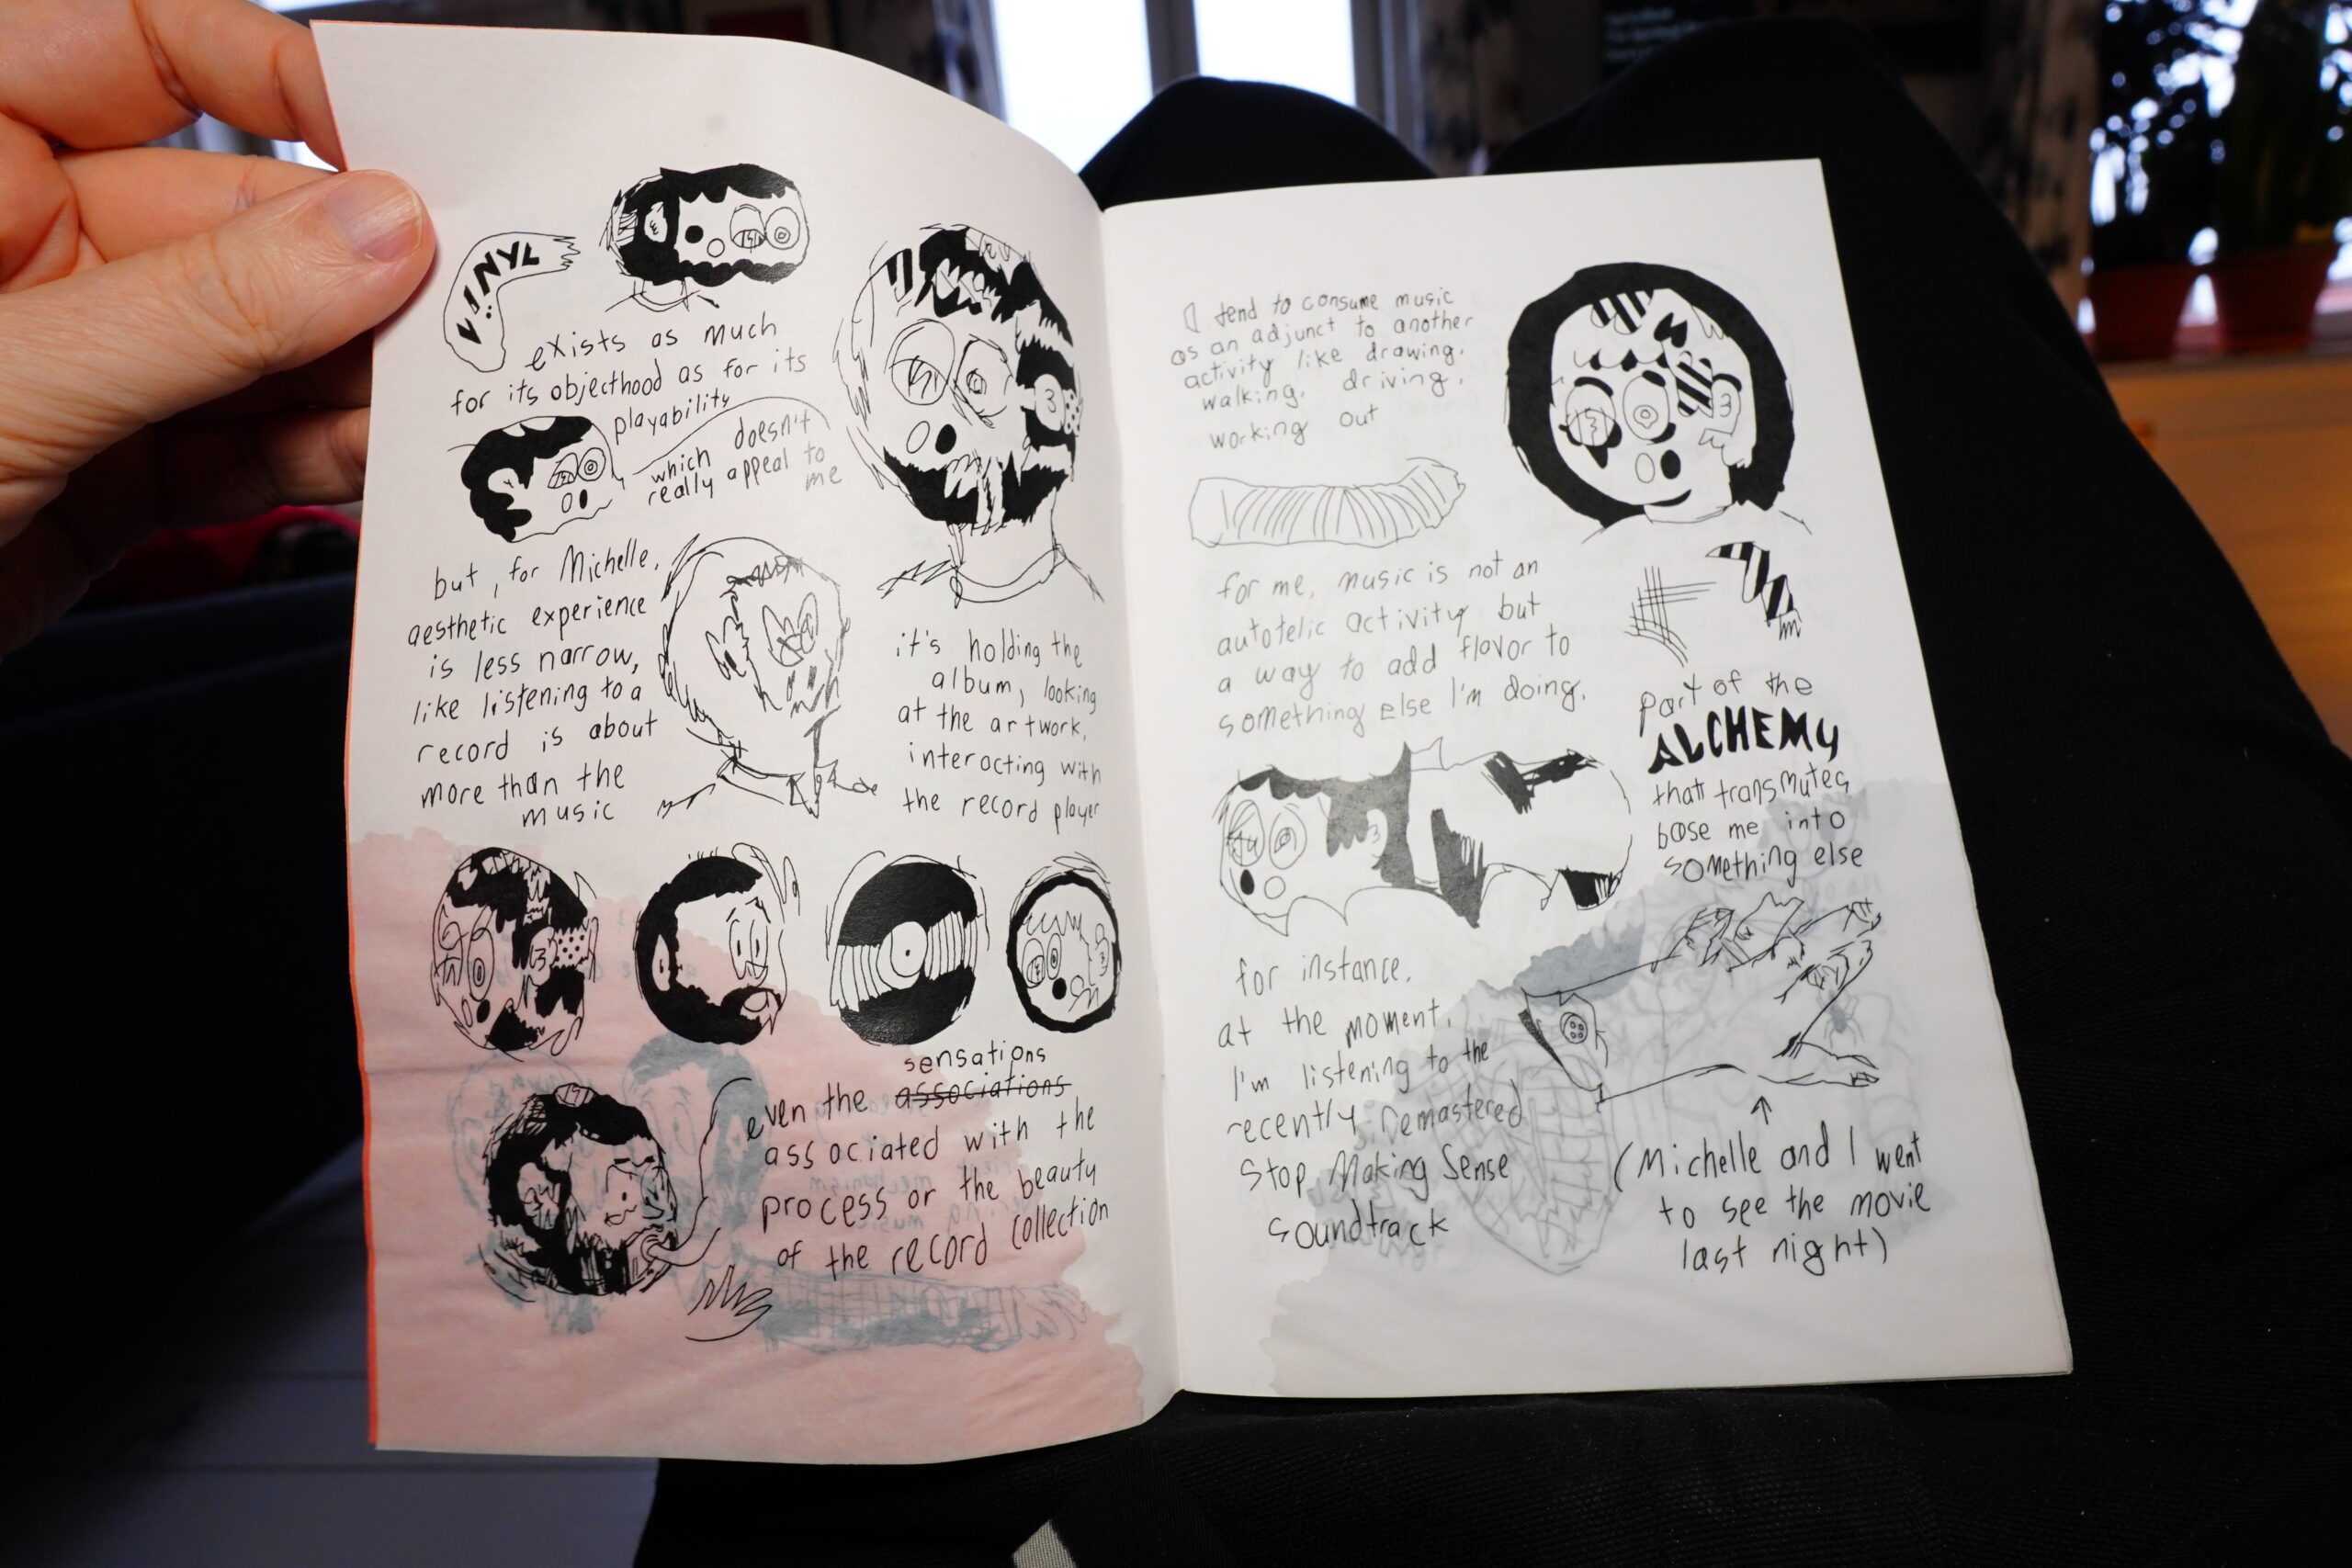 VINYL
exists as much
for its objecthood as for its
playability
which doesn't
really appeal to
me
but, for Michelle,
aesthetic experience
is less narrow,
like listening to a
record is about
more than the
music
it's holding the
album, looking
at the artwork,
interacting with
the record player
sensations
even the associations
associated with the
process or the beauty
of the record collection
I tend to consume music
as an adjunct to another
activity like drawing,
walking, driving,
working out
for me, music is not an
autotelic activity but
a way to add flavor to
something else I'm doing.
part of the
ALCHEMY
that transmutes
base me into
something else
for instance,
at the moment,
I'm listening to the
recently remastered
Stop Making Sense
soundtrack
(Michelle and I went
to see the movie
last night)